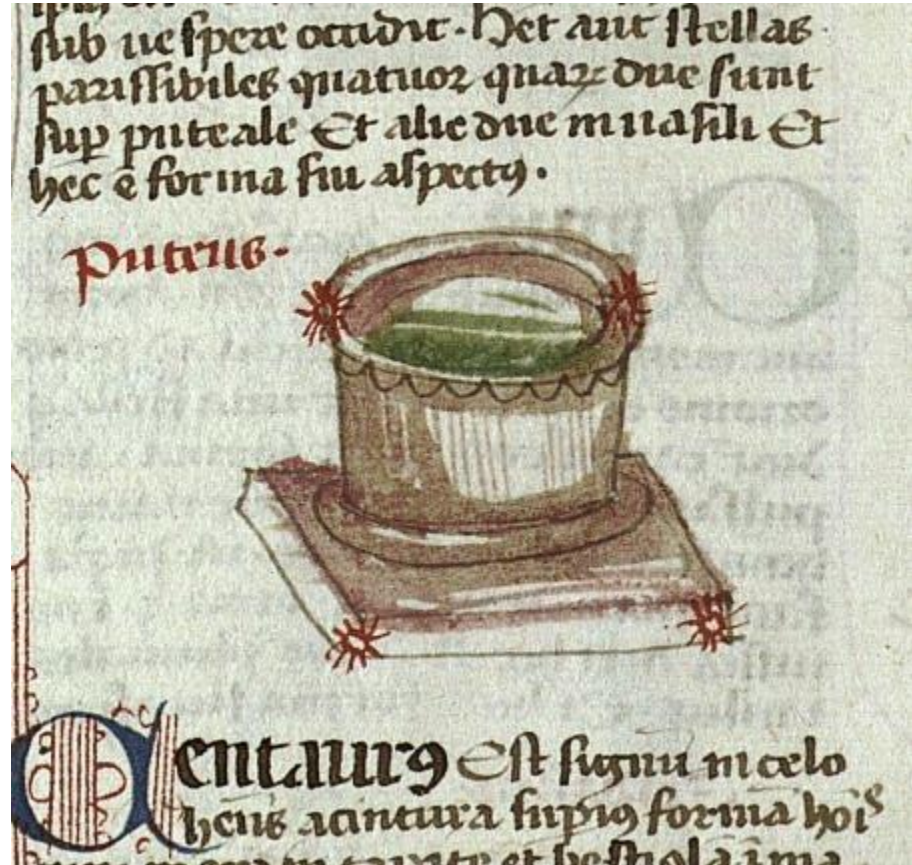 sub uespere occidit. Het aut stellas
parissibiles quatuor quar due sunt
sup puteale Et alie due in uasili Et
hec ē forma sui aspectꝯ.
Puteus.
Centaurꝯ Est signū in celo
hēns a cintura supiꝯ formā hoīs
et bestiola